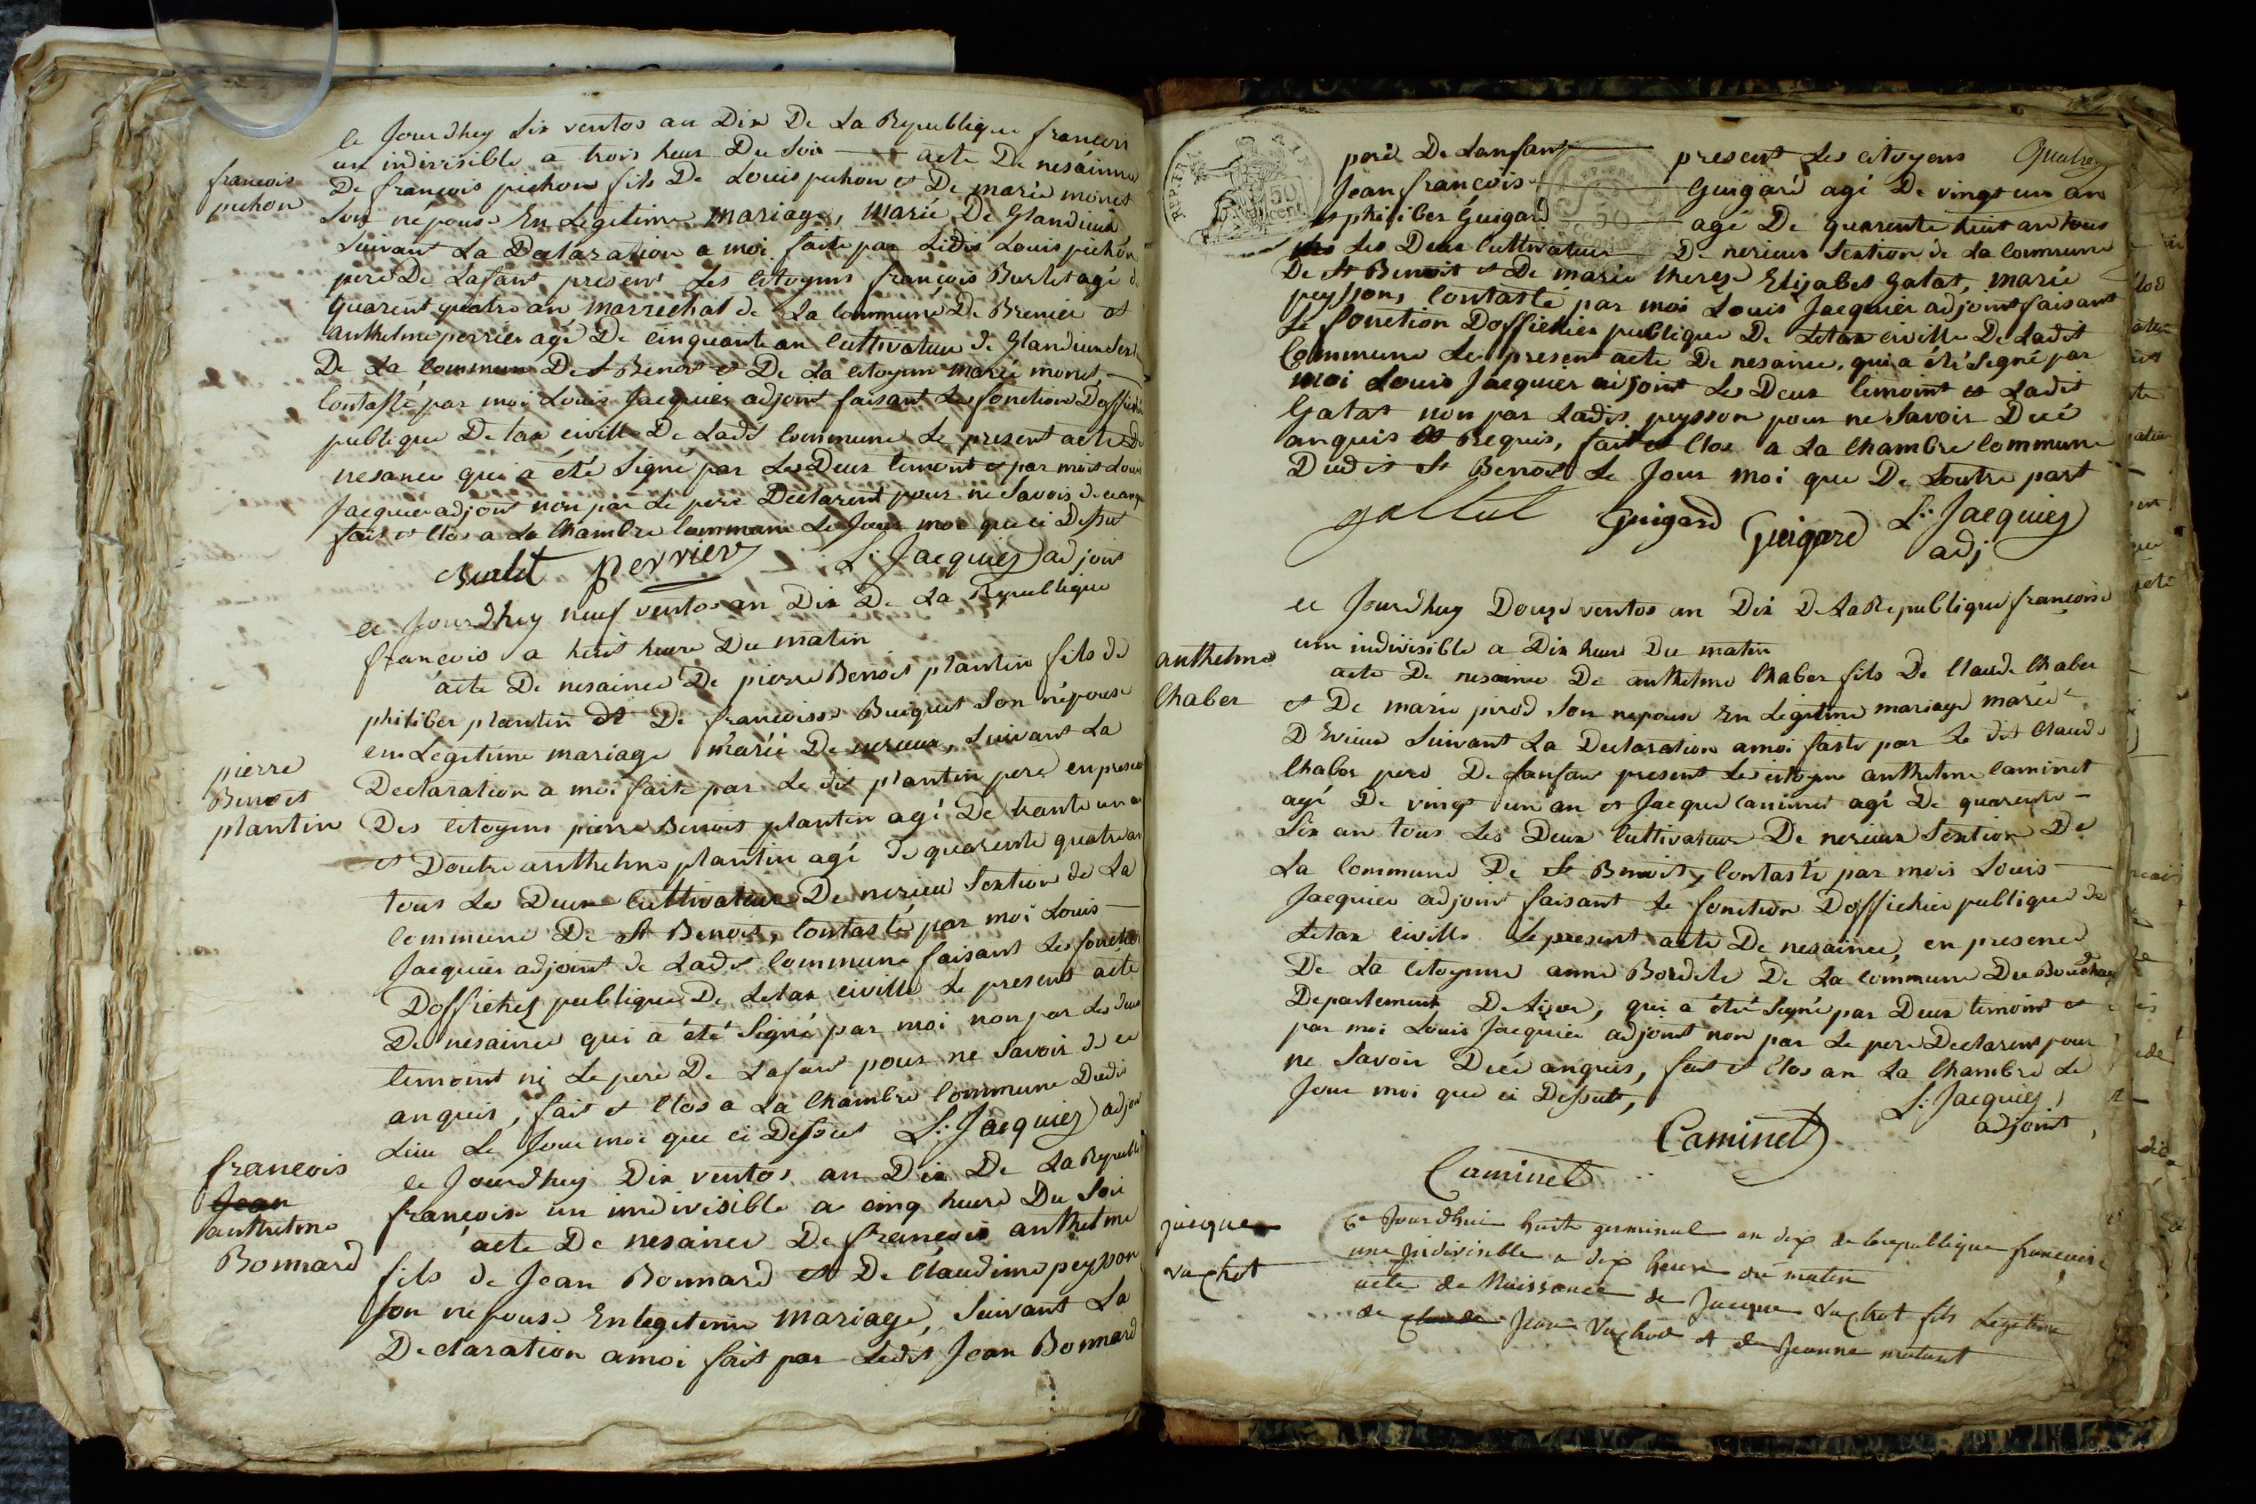 ce Jourdhuy Six ventos an Dix De La Republique francois
un indivisible a trois heur Du Soir acte De nesainne
francois
pichon
De francois pichon fils De Louis pichon et De marie monet
Son népouse En Legitime mariage, marié De Glandieux
Suivant La Declaration a moi faite par Ledit Louis pichon
pere De Lafant present Les Citoyens francois Burlet agé d
quarent quatre an marrechal de La Commune De Brenier et
anthelme perrier agé De cinquante an Cultivateur de Glandieu Sext
De La Commune De St Benoit et De La citoyen marie monet
Contasté par moi Louis Jacquier adjoint faisant Les fonction Doffi
publique De tax civille De Ladit Commune Le present acte D
nesance qui a été Signé par Les Deux temoint et par moi Loui
Jacquier adjoint non par Le pere Declarent pour ne Savoir de ce anq
fait et Clos a La Chambre Commune Le Jour moi que ci Dessut
Burlet perrier L: Jacquier adjoint
ce Jourdhuy neuf ventos an Dix De La Republique
francois a huit heure Du matin
acte De nesaince De pierre Benoit plantin fils de
philiber plantin et De francoisse Buiquet Son népouse
en Legitime mariage marié De nerieux, Suivant La
pierre
Benoit
plantin
Declaration a moi faite par Le dit plantin pere en presen
Des Citoyens pierre Benoit plantin agé De trante un an
et Doutre anthelme plantin agé De quarente quatre an
tous Les Deux Cultivateur De nerieu Sextion de La
Commune De St Benoit, Contasté par moi Louis
Jacquier adjoint de Ladit Commune faisant Les fonction
Doffichez publique De Letax civille Le present acte
De nesaince qui a été Signé par moi non par Les deux
temoint ni Le pere De Lafant pour ne Savoir De ce
anquis, fait et Clos a La Chambre Commune Dudit
Lieu Le Jour moi que ci Dessut L: Jacquier adjoi
francois
Jean
anthelme
Bonnard
ce Jourdhuy Dix ventos an Dix De La Republi
francoise un indivisible a cinq heure Du Soir
acte De nesaince De francois anthelme
fils de Jean Bonnard et De Claudine peysson
Son nepouse En legitime mariage, Suivant La
Declaration a moi fait par Ledit Jean Bonnard
REP. FRA.
50
cent
peré De Lanfant present Les citoyens
Jean francois Guigard agé De vingt un an
et philiber Guigard agé De quarente huit an tous
Les Deux Cultivateur De nerieux Sextion de La Commune
De St Benoit et De marie therese Elizabet Gatat, marie
peysson, Contasté par moi Louis Jacquier adjoint faisant
Le fonction Doffichier publique De Letax civille De Ladit
Commune Le present acte De nesaince, qui a été Segné par
moi Louis Jacquier adjoint Les Deux temoint et Ladit
Gatat non par Ladit peysson pour ne Savoir De cé
anquis et Requis, fait et Clos a La Chambre Commune
Dudit St Benoit Le Jour moi que De Loutre part
gattat Guigard Guigard L: Jacquier
adj
ce Jourdhuy Douze ventos an Dix De La Republique francoise
une indivisible a Dix heure Du matin
anthelme
Chaber
acte De nesaince De anthelme Chaber fils De Claude Chaber
et De marie pirod Son nepouse En Legitime mariage marié
D Evieux Suivant La Declaration a moi faite par Le dit Claude
Chaber pere De Lanfant present Les citoyens anthelme Caminet
agé De vingt un an et Jacque Caminet agé De quarente
Six an tous Les Deux Cultivateur De nerieux Sextion De
La Commune De St Benoit, Contasté par mois Louis
Jacquier adjoint faisant Le fonction Doffichier publique de
Letax civille Le present acte De nesaince, en presence
De La Citoyenne anne Bordele De La Commune Du Bouchage
Departement De Lizer, qui a été Segné par Deux temoint et
par moi Louis Jacquier adjoint non par Le pere Declarent pour
ne Savoir De cé anquis, fait et Clos an La Chambre Le
Jour moi que ci Dessut,
L: Jacquier
adjoint
Caminet
Caminet
jacque
vachot
Ce Jourdhui huit germinal an dix de la republique francaise
une Indivisible a dix heure du matin
acte de Naissance de Jacque Vachot fils Legitime
de Claude Jean Vachot et de Jeanne